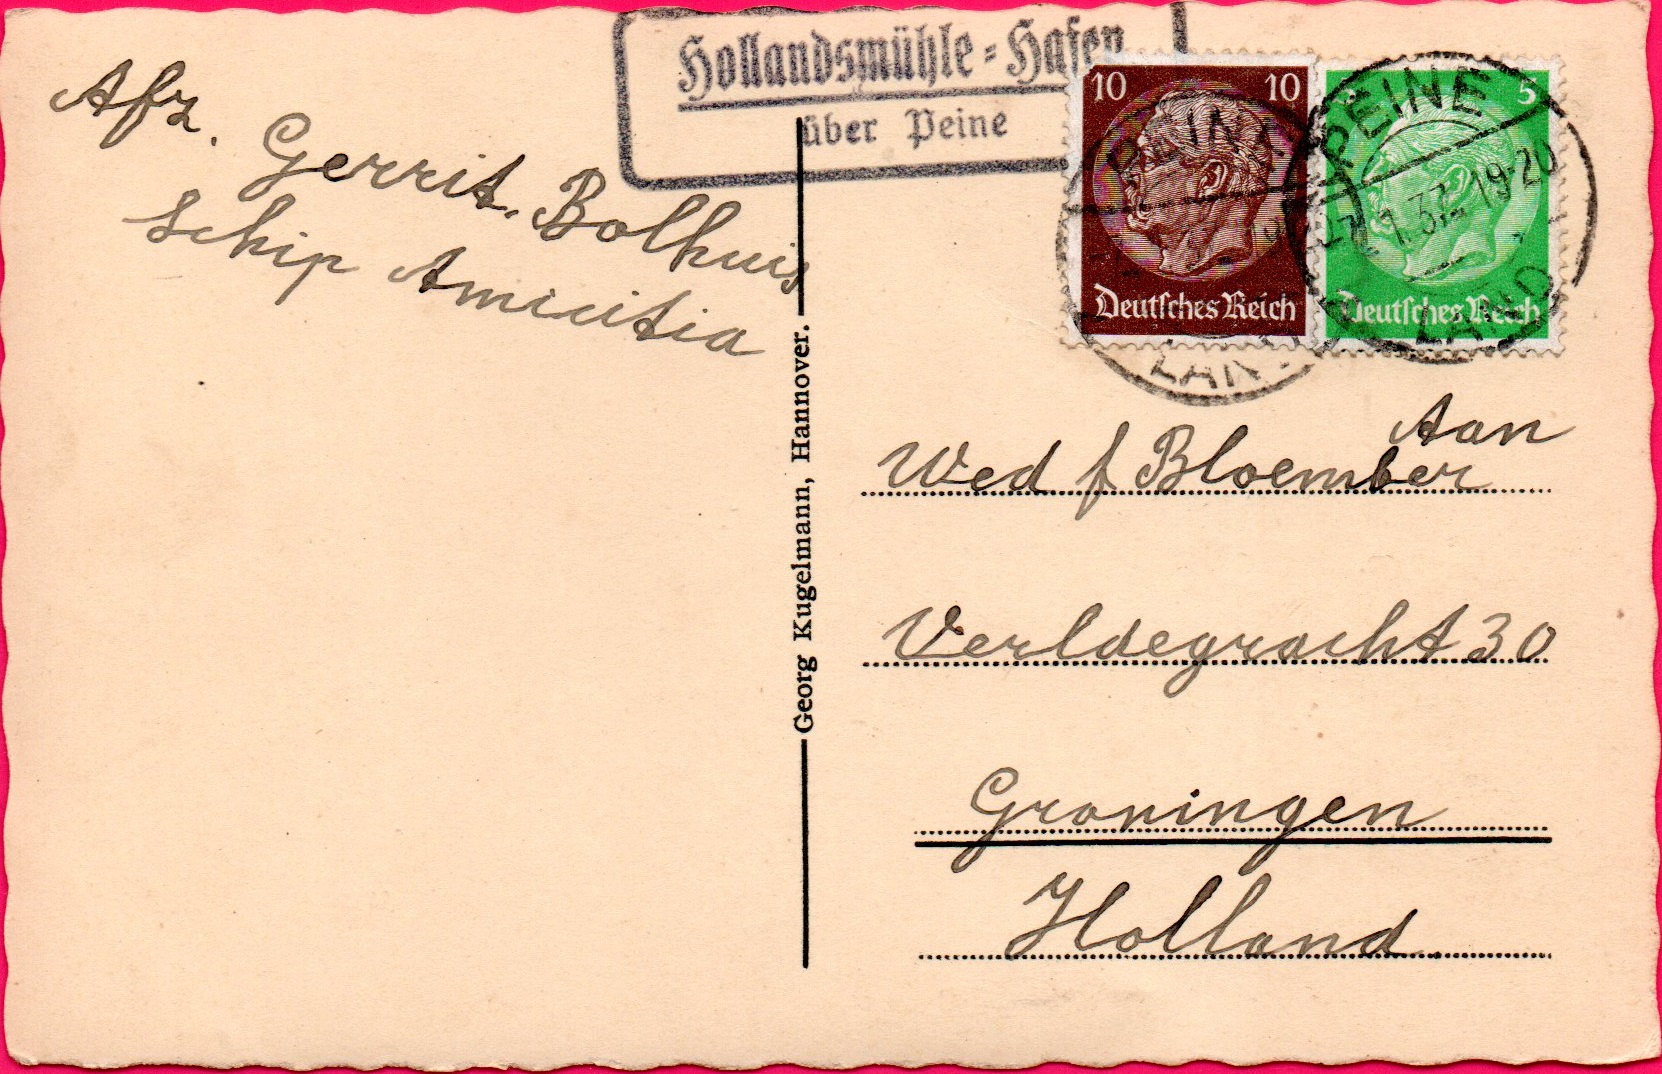 Hollandsmühle=Hafen
über Peine
10 10
Deutsches Reich
5
Deutsches Reich
PEINE
LAND
PEINE
1.37.-19-20
LAND
Afz.
Gerrit. Bolhuis
Schip Amicitia
Georg Kugelmann, Hannover.
Aan
Wed f Bloember
Verldegracht 30
Groningen
Holland.